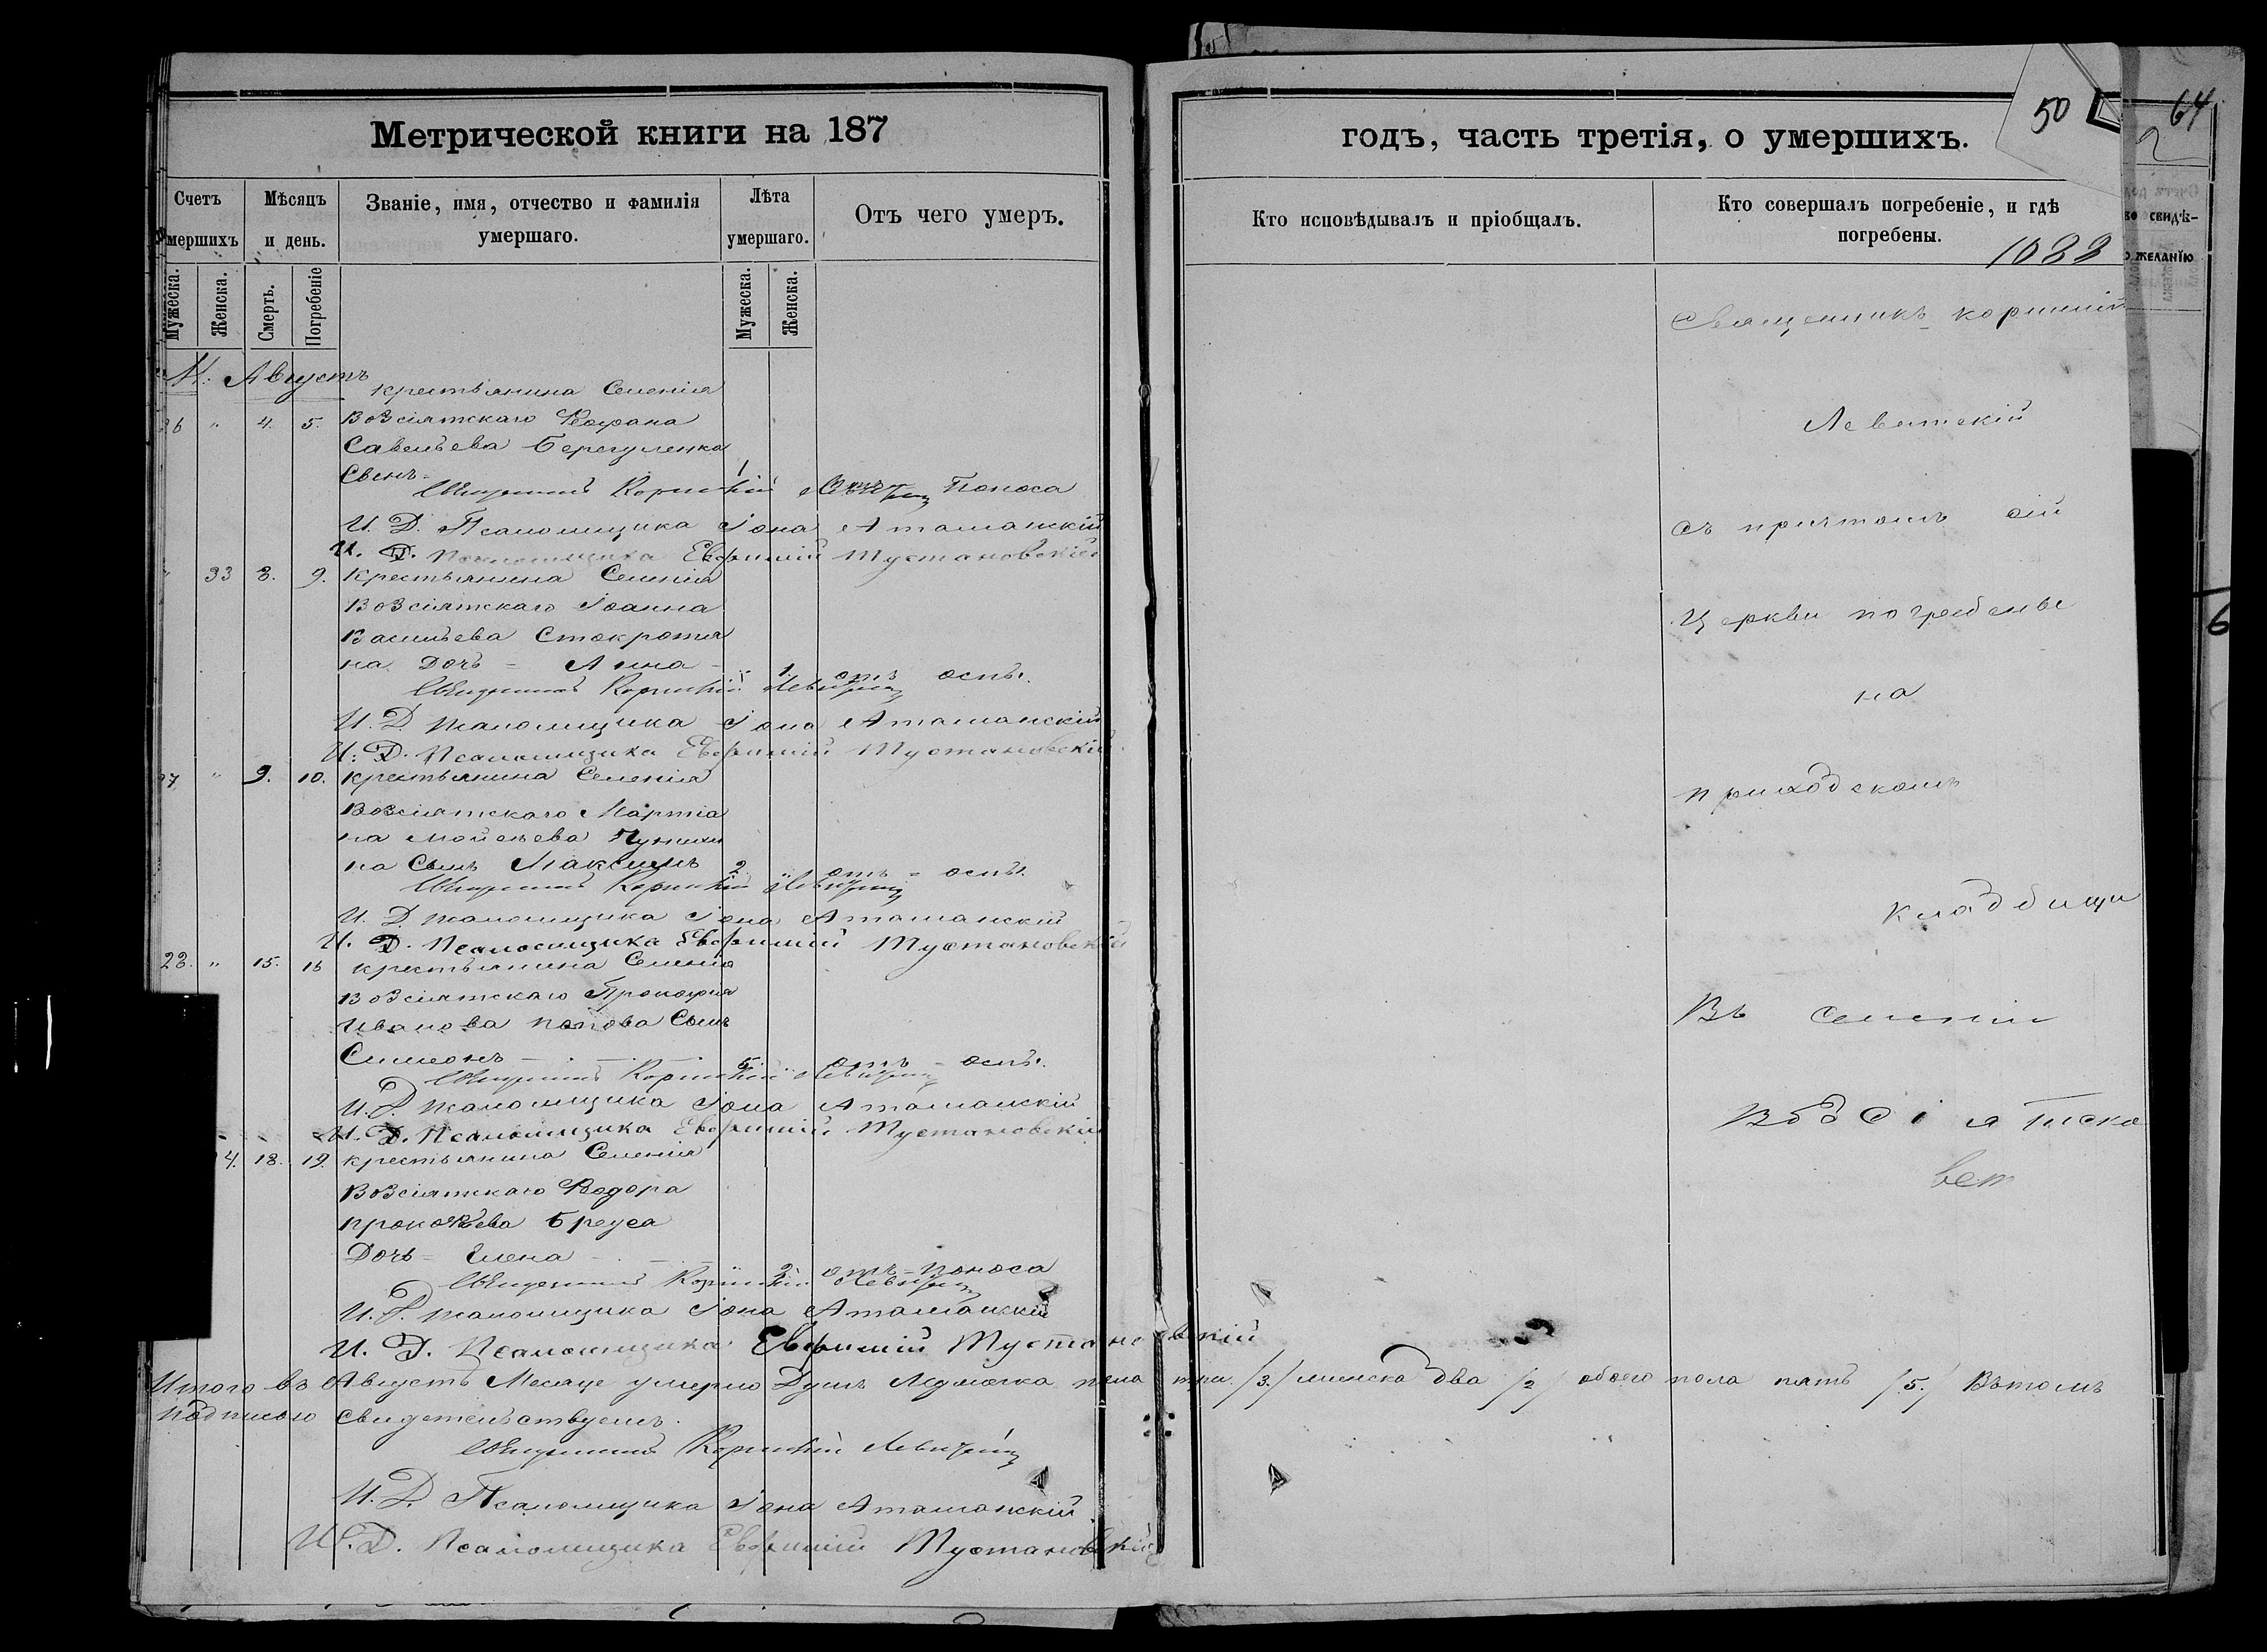 Метрической книги на 187
Счетъ умершихъ
Мѣсяцъ и день.
Званіе, имя, отчество и фамилія умершаго.
Лѣта умершаго.
Отъ чего умеръ.
Мужеска.
Женска.
Смерть.
Погребеніе
Мужеска.
Женска.
М: Августъ
крестьянина Селенія
26 " 4. 5. Возсіятскаго
Савельева
1 Поноса
Священникъ Корнилій Левитскій
И. Д. Псаломщика Іона Атаманскій
И. Д. Псаломщика Евфимій Тустановскій
" 33 8. 9. Крестьянина Селенія
Возсіятскаго Іоанна
Васильева Стокротя
на Дочь - Анна - " 1. отъ оспы.
Священникъ Корнилій Левитскій
И. Д. псаломщика Іона Атаманскій
И. Д. Псаломщика Евфимій Тустановскій
27 " 9. 10. крестьянина Селенія
Возсіятскаго Мартіа
на Мойсеева
на Сынъ Максимъ 2 " отъ - оспы.
Священникъ Корнилій Левитскій
И. Д. псаломщика Іона Атаманскій
И. Д. Псаломщика Евфимій Тустановскій
28. " 15. 16 крестьянина Селенія
Возсіятскаго Прокофія
Иванова попова Сынъ
Симеонъ 5 " отъ - оспы.
Священникъ Корнилій Левитскій
И. Д. псаломщика Іона Атаманскій
И. Д. Псаломщика Евфимій Тустановскій
4. 18. 19. крестьянина Селенія
Возсіятскаго Ѳеодора
прокофьева Бреуса
Дочь - Елена - 2 отъ - поноса
Священникъ Корнилій Левитскій
И. Д. псаломщика Іона Атаманскій
И. Д. Псаломщика Евфимій Тустановскій
Итого въ Августъ Месяце умерло Душъ Мужска пола три /3./ женска два /2/ обоего пола пять /5./ Вътомъ
подписью Свидетельствуемъ.
Священникъ Корнилій Левитскій
И. Д. Псаломщика Іона Атаманскій
И. Д. Псаломщика Евфимій Тустановскій
годъ, часть третія, о умершихъ.
50
64
2
Кто исповѣдывалъ и пріобщалъ.
Кто совершалъ погребеніе, и гдѣ погребены.
свидѣ-
желанію
Священникъ корнилій
Левитскій
съ причтомъ сій
Церкви погребенье
на
приходскомъ
кладбищи
Въ Селеніи
Возсіятска
6